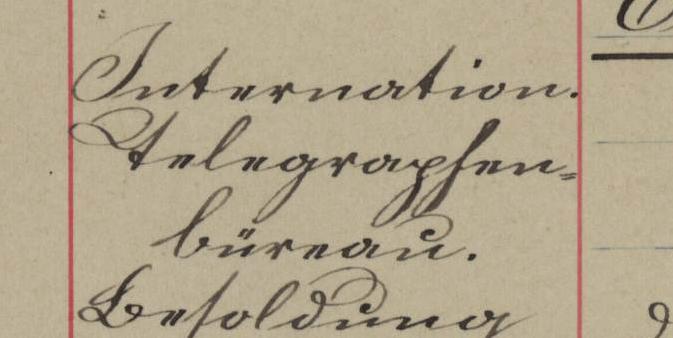 Internation.
Telegraphen-
büreau.
Besoldung